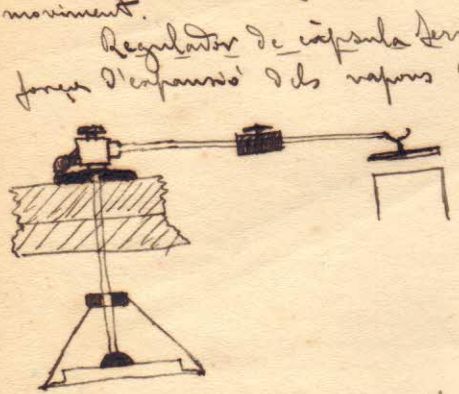 moviment.
Regulador de càpsula
força d'expansió dels vapors